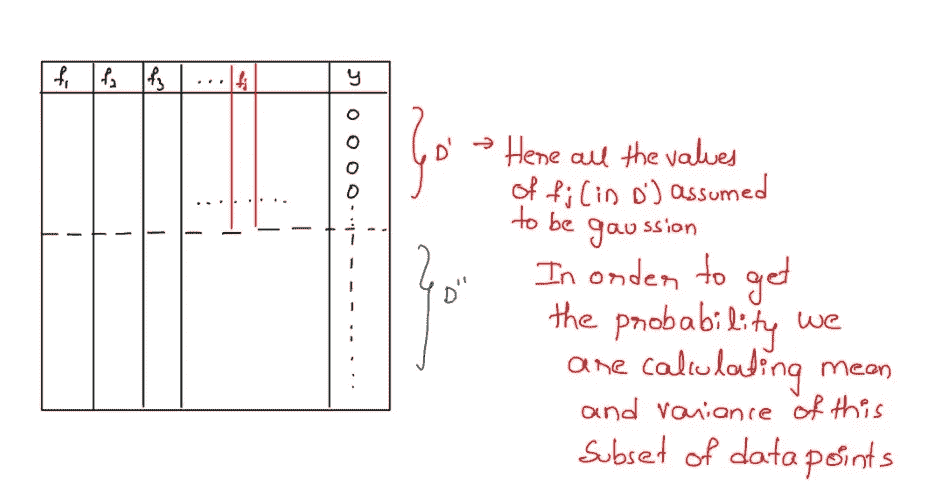 f₁ f₂ f₃ ... fⱼ y
0
0
0
0
D' → Here all the values
of fⱼ (in D') assumed
to be gaussion
D''
In order to get
the probability we
are calculating mean
and variance of this
Subset of data points